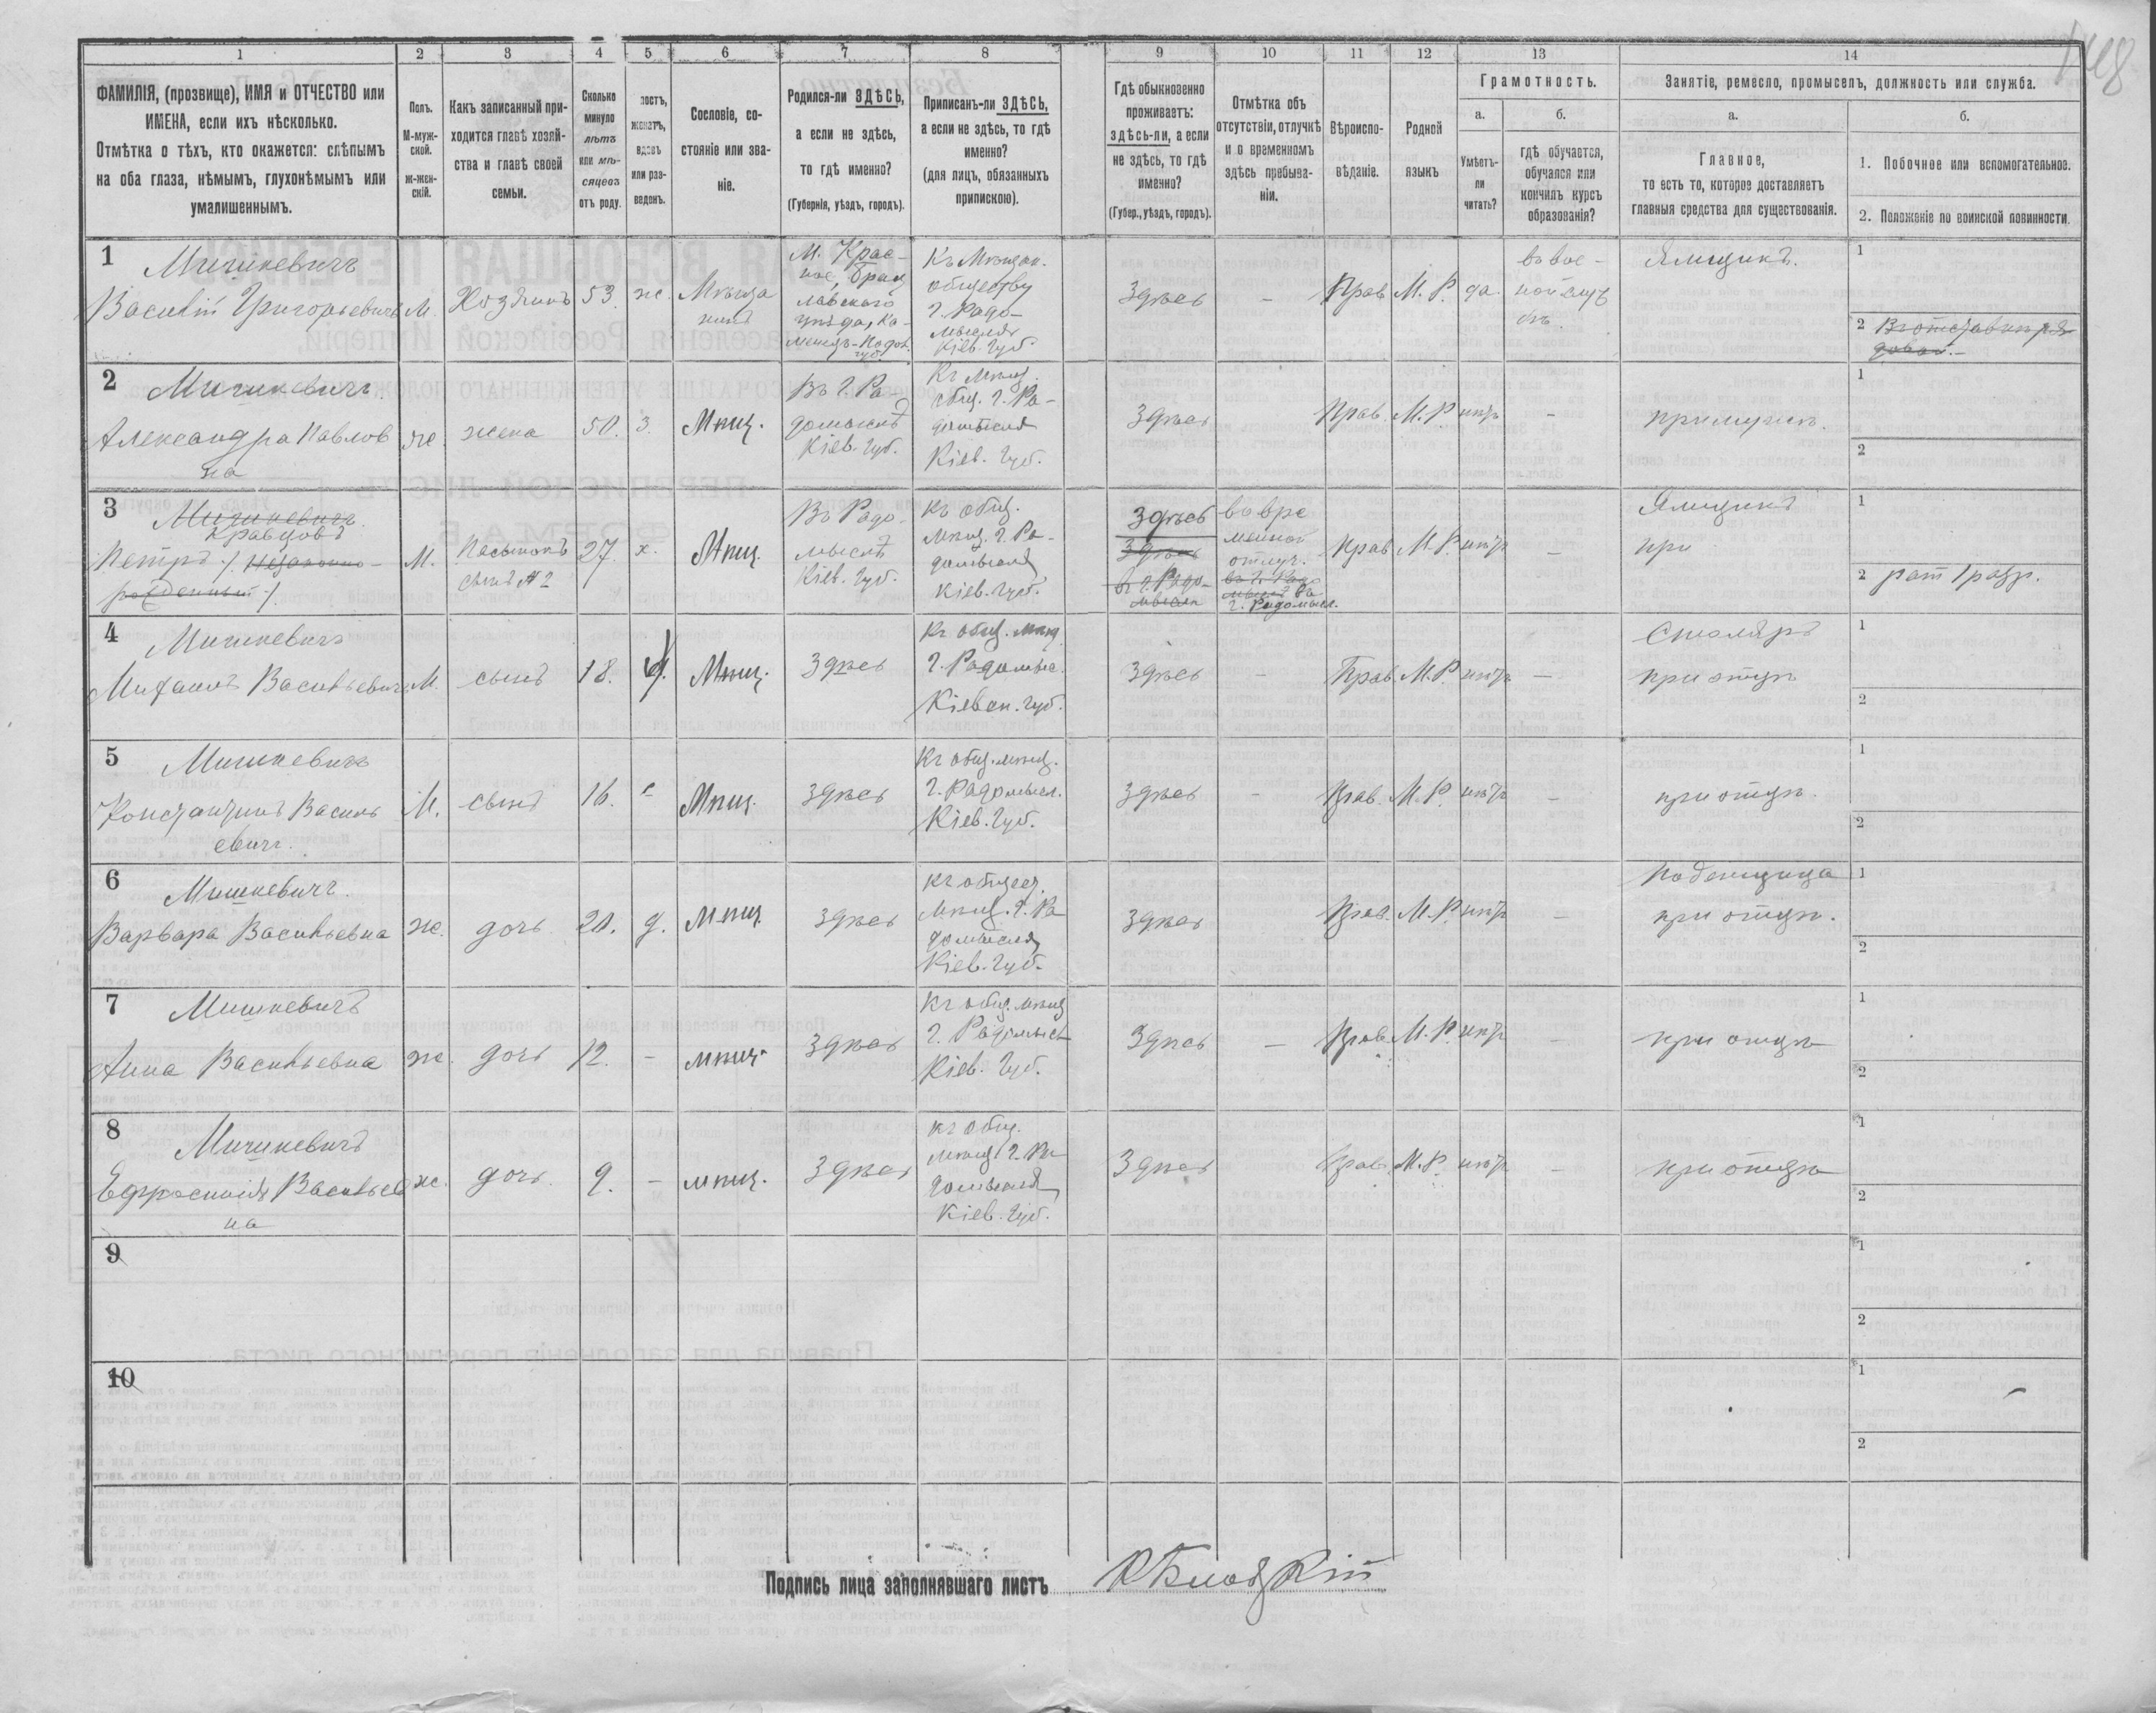 148
1 2 3 4 5 6 7 8 9 10 11 12 13 14
ФАМИЛІЯ, (прозвище), ИМЯ и ОТЧЕСТВО или
ИМЕНА, если ихъ нѣсколько.
Отмѣтка о тѣхъ, кто окажется: слѣпымъ
на оба глаза, нѣмымъ, глухонѣмымъ или
умалишеннымъ.
Полъ.
М-муж-
ской.
ж-жен-
скій.
Какъ записанный при-
ходится главѣ хозяй-
ства и главѣ своей
семьи.
Сколько
минуло
лѣтъ
или мѣ-
сяцевъ
отъ роду.
ростъ,
женатъ,
вдовъ
или раз-
веденъ.
Сословіе, со-
стояніе или зва-
ніе.
Родился-ли ЗДѢСЬ,
а если не здѣсь,
то гдѣ именно?
(Губернія, уѣздъ, городъ).
Приписанъ-ли ЗДѢСЬ,
а если не здѣсь, то гдѣ
именно?
(для лицъ, обязанныхъ
припискою).
Гдѣ обыкновенно
проживаетъ:
здѣсь-ли, а если
не здѣсь, то гдѣ
именно?
(Губер., уѣздъ, городъ).
Отмѣтка объ
отсутствіи, отлучкѣ
и о временномъ
здѣсь пребыва-
ніи.
Вѣроиспо-
вѣданіе.
Родной
языкъ
Грамотность.
а.
Умѣетъ-
ли
читать?
б.
гдѣ обучается,
обучался или
кончилъ курсъ
образованія?
Занятіе, ремесло, промыселъ, должность или служба.
а.
Главное,
то есть то, которое доставляетъ
главныя средства для существованія.
б.
1. Побочное или вспомогательное.
2. Положеніе по воинской повинности.
1
Мишкевичъ
Василій Григорьевичъ
М.
Хозяинъ
53.
ж.
Мѣща
нинъ
М. Крас-
ное, Брац
лавскаго
уѣзда, Ка-
менец-Подол.
губ.
Къ Мѣщан.
обществу
г. Радо-
мысля
Кіев. Губ.
Здѣсь
-
Прав.
М. Р.
да.
въ вое-
Ямщикъ.
1
2 Въ отставкѣ ря
довой.-
2
Мишкевичъ.
Александра Павлов
на
ж.
жена
50.
з.
Мѣщ.
Въ г. Ра-
домыслѣ
Кіев. Губ.
Къ мѣщ.
общ. г. Ра-
домысля
Кіев. Губ.
Здѣсь
Прав.
М. Р.
нѣтъ
-
при мужѣ.
1
2
3
Мишкевичъ.
Кравцовъ
Петръ /. Незаконно-
рожденный /.
М.
Пасынокъ
сынъ № 2
27.
х.
Мѣщ.
Въ Радо-
мыслѣ
Кіев. Губ.
Къ общ.
мѣщ. г. Ра-
домысля
Кіев. Губ.
Здѣсь
Здѣсь
въ г. Радо-
мысли
во вре
менной
отлуч.
г. Радомысл.
Прав.
М. Р.
нѣтъ
-
Ямщикъ
при
1
2 рат 1 разр.
4
Мишкевичъ
Михаилъ Васильевичъ
М.
сынъ
18.
Мѣщ.
Здѣсь
Къ общ. мѣщ
г. Радомысл.
Кіевск. Губ.
Здѣсь
-
Прав.
М. Р.
нѣтъ
-
Столяръ
при отцѣ
1
2
5
Мишкевичъ
Константинъ Василь
евичъ.
М.
сынъ
16.
Мѣщ.
Здѣсь
Къ общ. мѣщ.
г. Радомысл.
Кіев. Губ.
Здѣсь
-
Прав.
М. Р.
нѣтъ
-
при отцѣ.
1
2
6
Мишкевичъ.
Варвара Васильевна
ж.
дочь
20.
д.
мѣщ
Здѣсь
Къ общест.
мѣщ. г. Ра
домысля
Кіев. Губ.
Здѣсь
Прав.
М. Р.
нѣтъ
-
Поденщица
при отцѣ.
1
2
7
Мишкевичъ
Анна Васильевна
ж.
дочь
12.
-
мѣщ.
Здѣсь
Къ общ. мѣщ
г. Радомысл
Кіев. Губ.
Здѣсь
-
Прав.
М. Р.
нѣтъ
-
при отцѣ
1
2
8
Мишкевичъ
Ефросинія Васильев
на
ж.
дочь.
9.
-
мѣщ.
Здѣсь
Къ общ.
мѣщ. г. Ра
домысля
Кіев. Губ.
Здѣсь
Прав.
М. Р.
нѣтъ
-
при отцѣ
1
2
9
1
2
10
1
2
Подпись лица заполнявшаго листъ